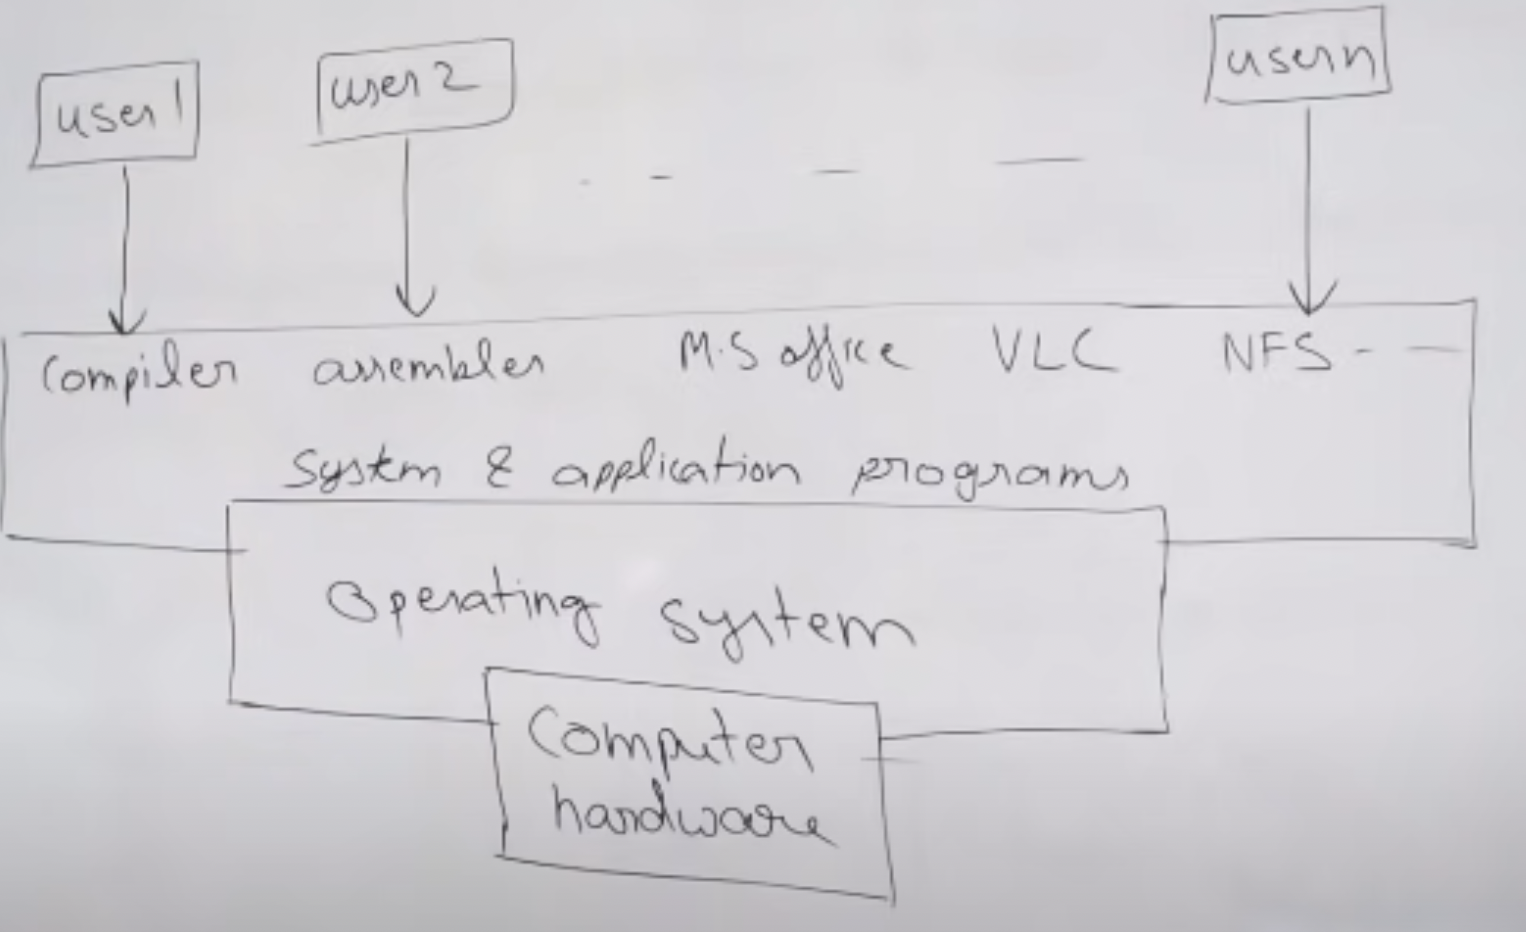 user 1
user 2
user n
Compiler assembler M.S office VLC NFS - —
System & application programs
Operating system
Computer
hardware